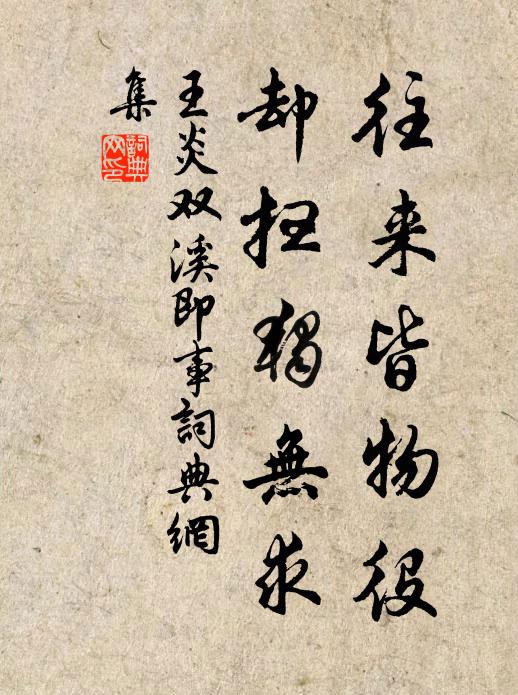 往来皆物役
却扫獨無求
王炎双溪即事詞典網
集
詞典
网印